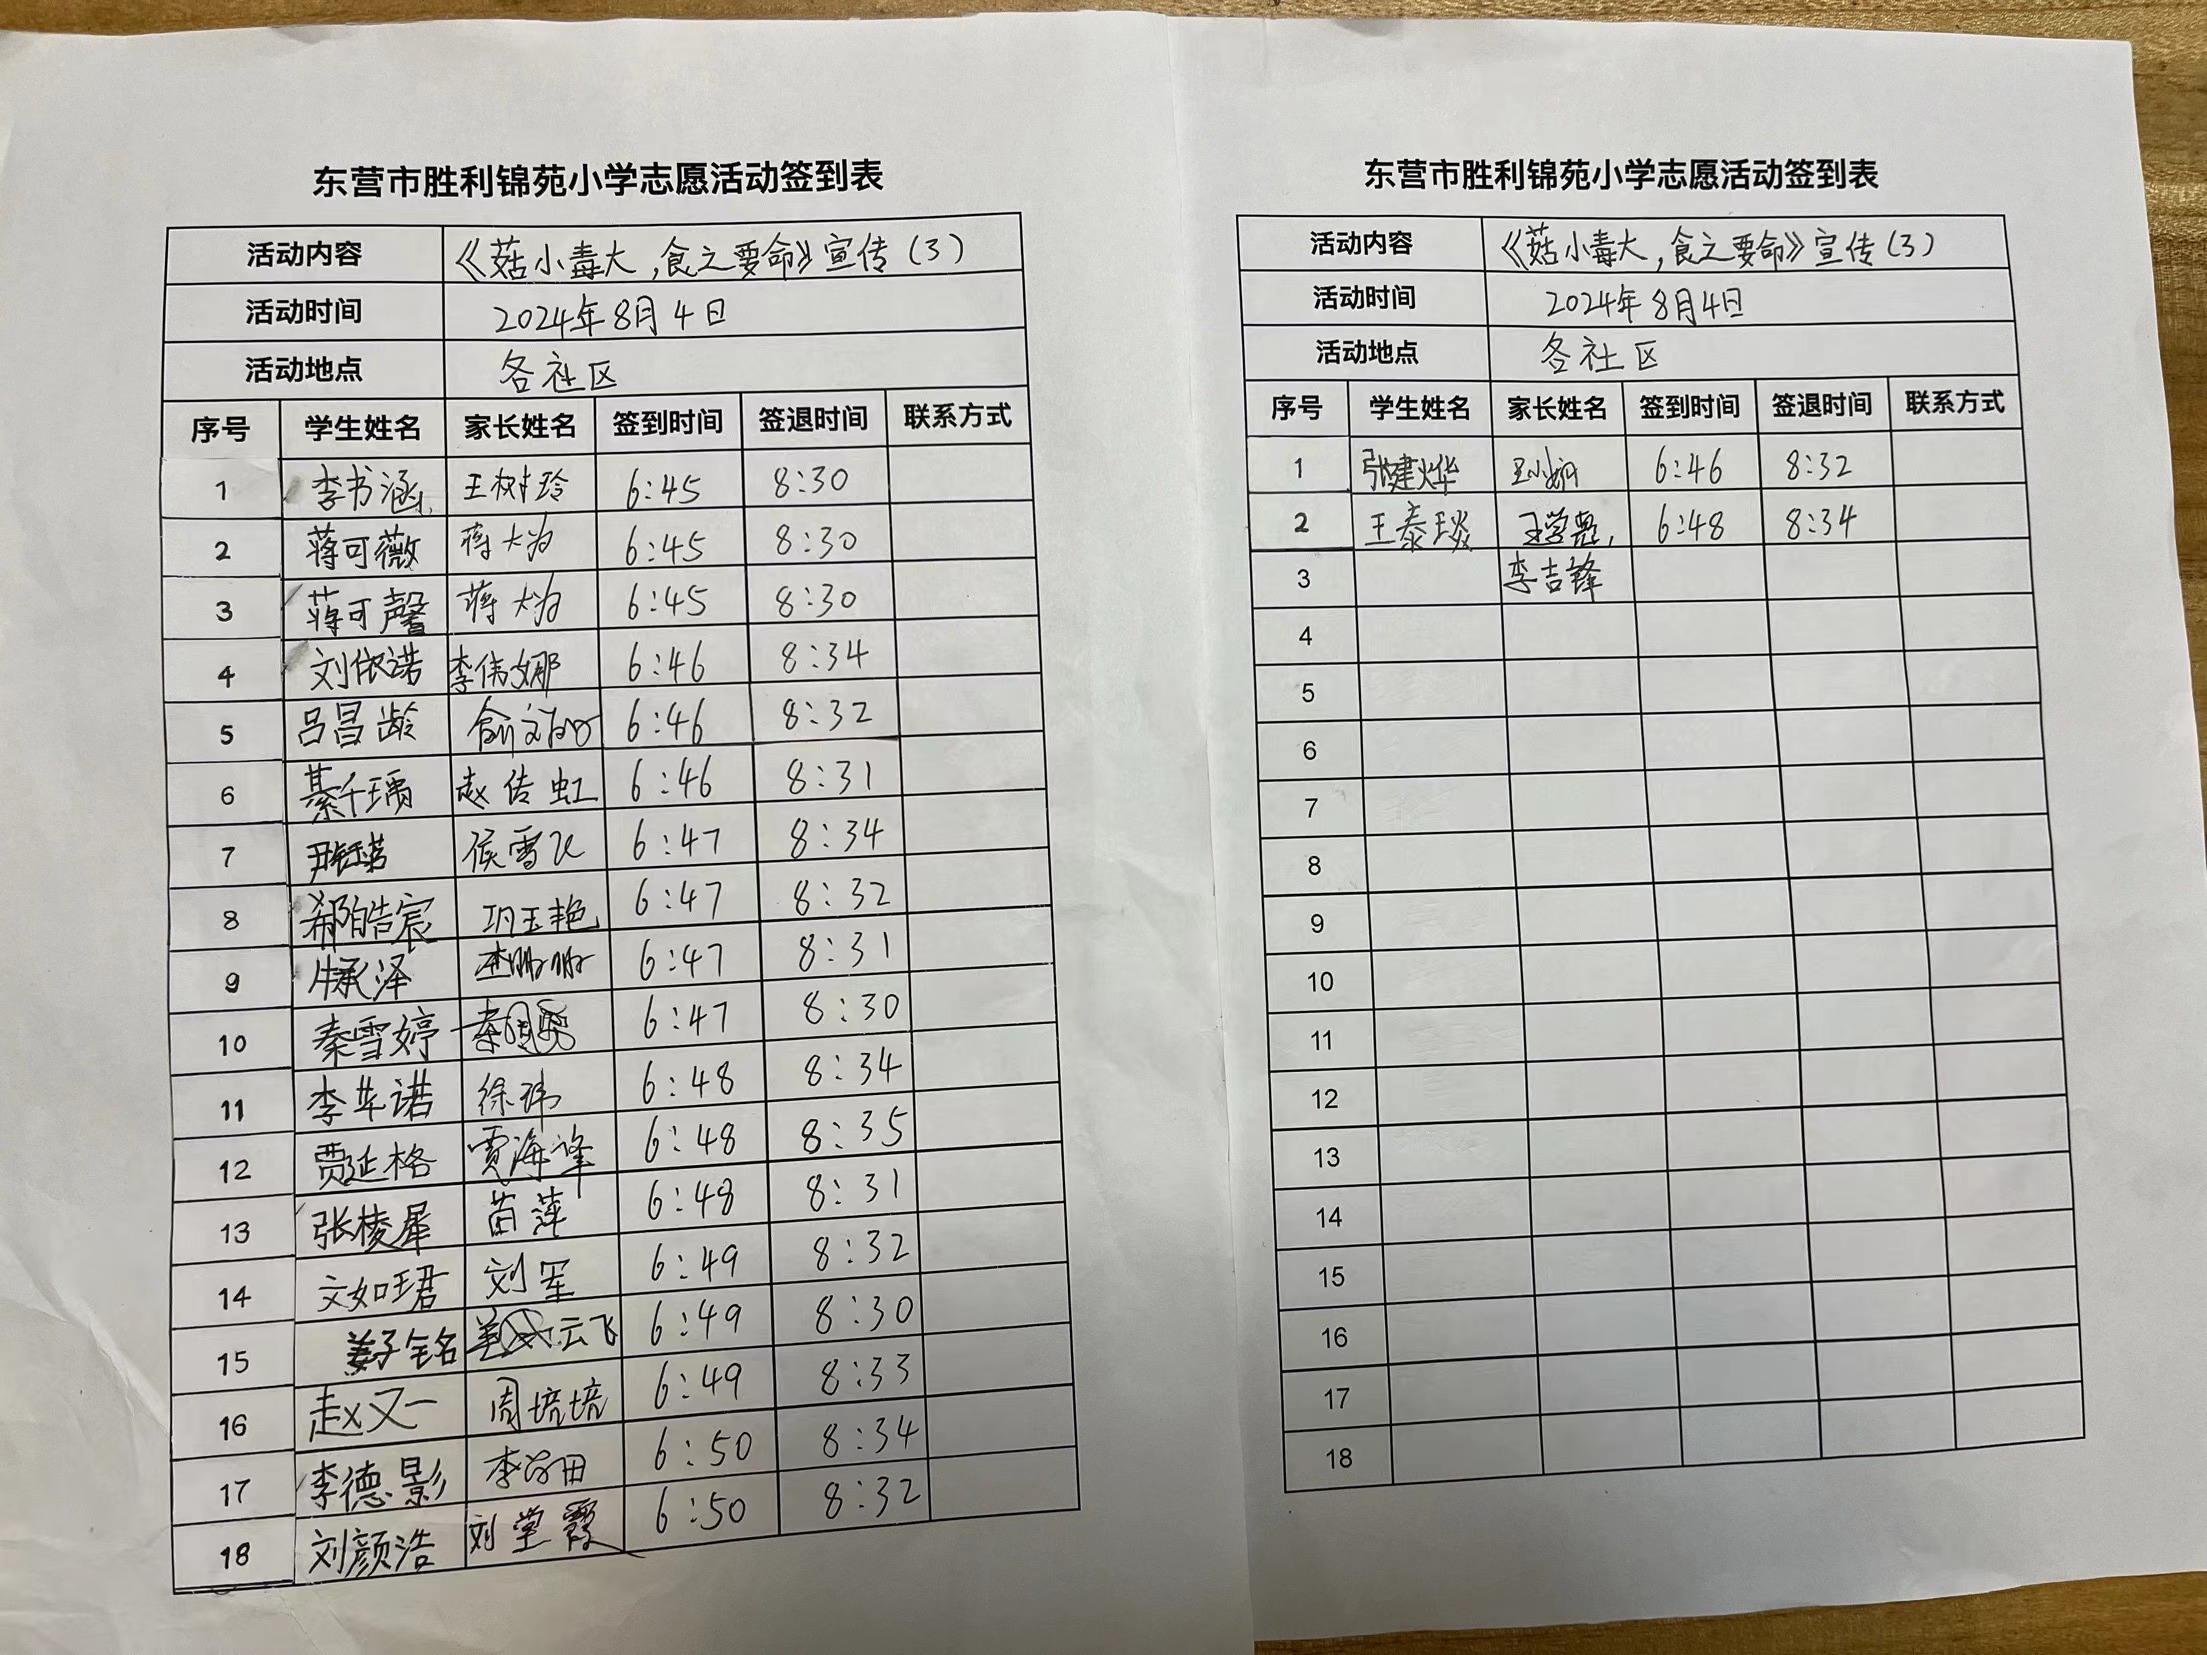 东营市胜利锦苑小学志愿活动签到表
活动内容 《菇小毒大,食之要命》宣传(3)
活动时间 2024年8月4日
活动地点 各社区
序号 学生姓名 家长姓名 签到时间 签退时间 联系方式
1 李书涵 王树玲 6:45 8:30
2 蒋可薇 蒋大为 6:45 8:30
3 蒋可馨 蒋大为 6:45 8:30
4 刘依诺 李伟娜 6:46 8:34
5 吕昌龄 6:46 8:32
6 綦千瑀 赵传虹 6:46 8:31
7 侯雪飞 6:47 8:34
8 郗皓宸 巩玉艳 6:47 8:32
9 牛承泽 6:47 8:31
10 秦雪婷 6:47 8:30
11 李华诺 徐玮 6:48 8:34
12 贾延格 贾海峰 6:48 8:35
13 张棱犀 苗萍 6:48 8:31
14 文如珺 刘军 6:49 8:32
15 姜子铭 姜云飞 6:49 8:30
16 赵又一 周培培 6:49 8:33
17 李德影 6:50 8:34
18 刘颜浩 刘堂霞 6:50 8:32
东营市胜利锦苑小学志愿活动签到表
活动内容 《菇小毒大,食之要命》宣传(3)
活动时间 2024年8月4日
活动地点 各社区
序号 学生姓名 家长姓名 签到时间 签退时间 联系方式
1 张建烨 6:46 8:32
2 王泰琰 6:48 8:34
3 李吉锋
4
5
6
7
8
9
10
11
12
13
14
15
16
17
18